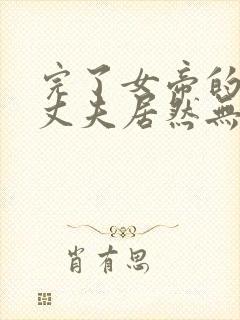 完了女帝的
丈夫居然無
肖有思